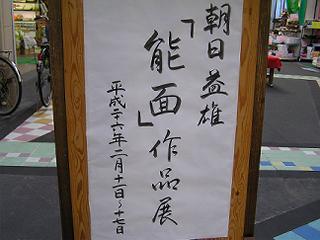 朝日益雄
「能面」作品展
平成二十六年二月十一日～十七日